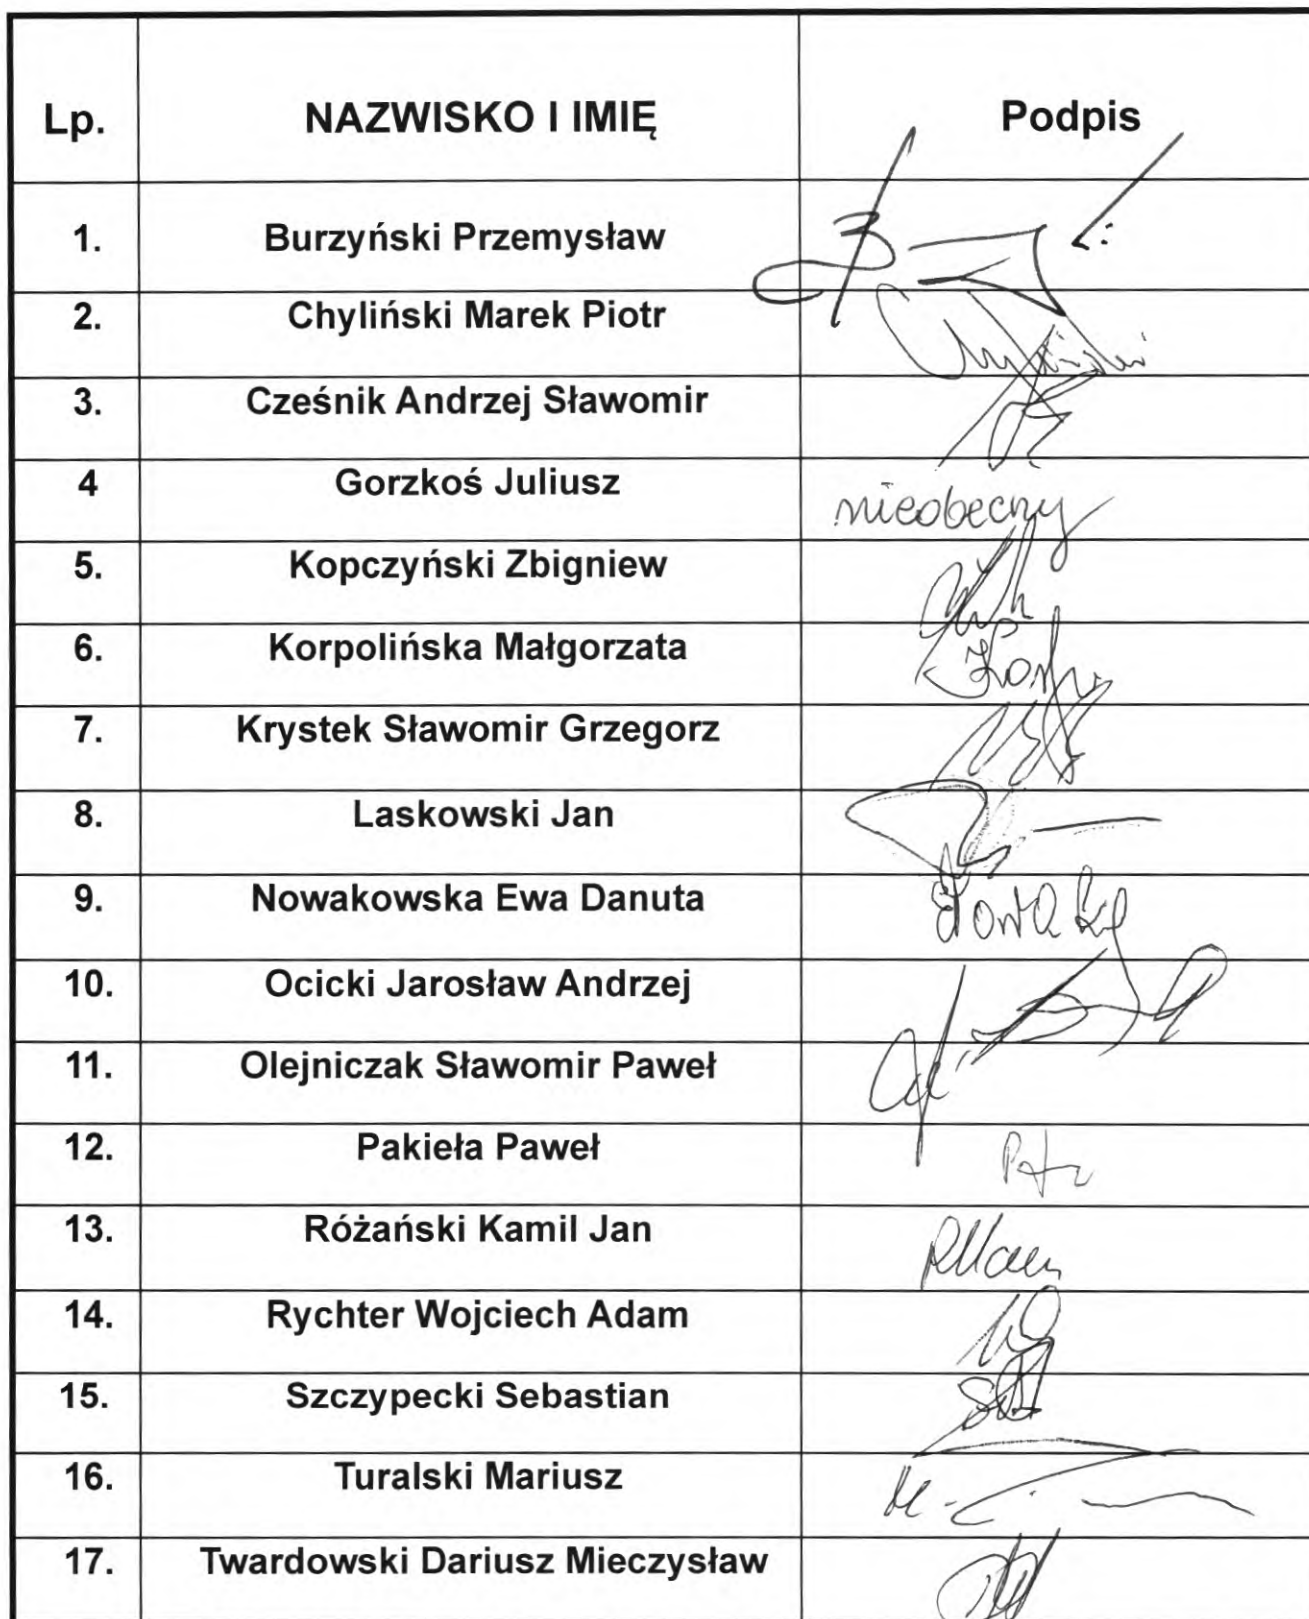 Lp. NAZWISKO I IMIĘ Podpis
1. Burzyński Przemysław
2. Chyliński Marek Piotr Chyliński
3. Cześnik Andrzej Sławomir
4 Gorzkoś Juliusz nieobecny
5. Kopczyński Zbigniew
6. Korpolińska Małgorzata
7. Krystek Sławomir Grzegorz
8. Laskowski Jan
9. Nowakowska Ewa Danuta
10. Ocicki Jarosław Andrzej
11. Olejniczak Sławomir Paweł
12. Pakieła Paweł
13. Różański Kamil Jan
14. Rychter Wojciech Adam
15. Szczypecki Sebastian
16. Turalski Mariusz
17. Twardowski Dariusz Mieczysław